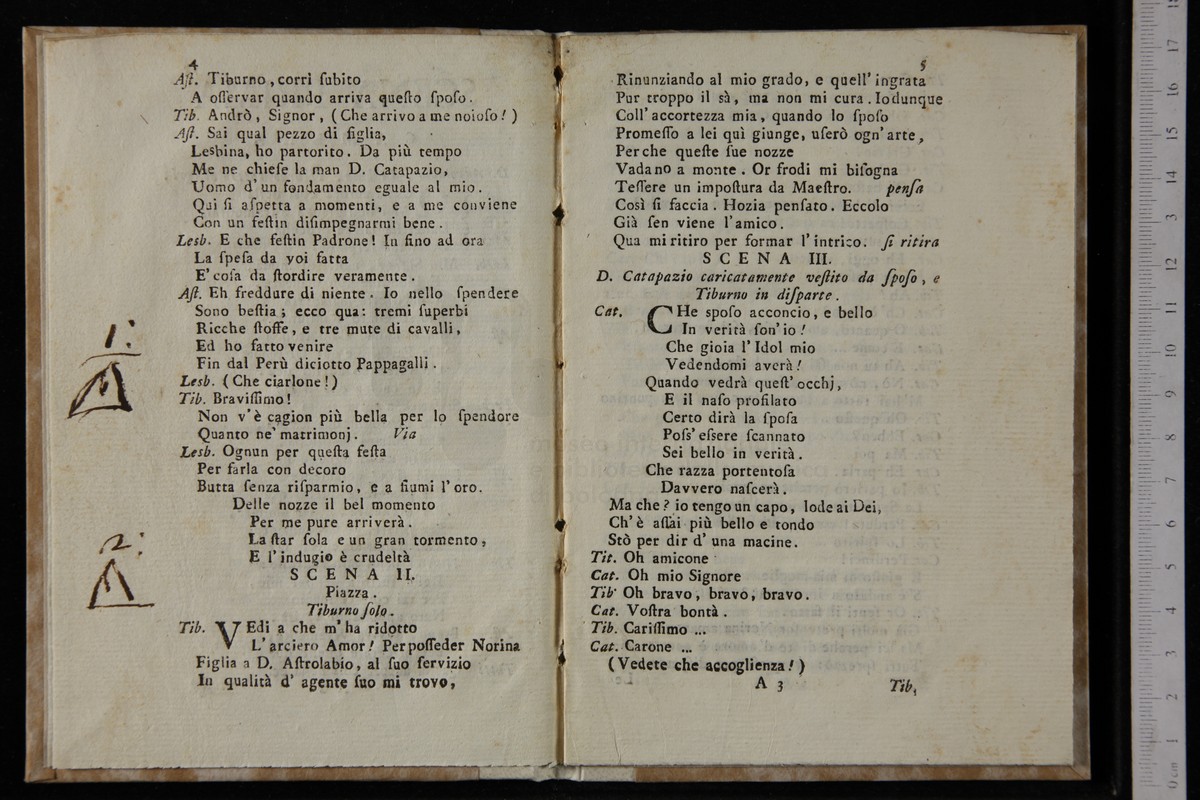 4
Aſt. Tiburno, corri ſubito
A oſſervar quando arriva queſto ſpoſo.
Tib. Andrò, Signor, (Che arrivo a me noioſo!)
Aſt. Sai qual pezzo di figlia,
Lesbina, ho partorito. Da più tempo
Me ne chieſe la man D. Catapazio,
Uomo d'un fondamento eguale al mio.
Qui ſi aſpetta a momenti, e a me conviene
Con un feſtin diſimpegnarmi bene.
Lesb. E che feſtin Padrone! In fino ad ora
La ſpeſa da voi fatta
E' coſa da ſtordire veramente.
Aſt. Eh freddure di niente. Io nello ſpendere
Sono beſtia; ecco qua: tremi ſuperbi
Ricche ſtoffe, e tre mute di cavalli,
Ed ho fatto venire
Fin dal Perù diciotto Pappagalli.
Lesb. (Che ciarlone!)
Tib. Braviſſimo!
Non v'è cagion più bella per lo ſpendore
Quanto ne' matrimonj. Via
Lesb. Ognun per queſta feſta
Per farla con decoro
Butta ſenza riſparmio, e a fiumi l'oro.
Delle nozze il bel momento
Per me pure arriverà.
La ſtar ſola e un gran tormento,
E l'indugio è crudeltà
SCENA II.
Piazza.
Tiburno ſolo.
Tib. VEdi a che m'ha ridotto
L'arciero Amor! Per poſſeder Norina
Figlia a D. Aſtrolabio, al ſuo ſervizio
In qualità d' agente ſuo mi trovo,
1:
2:
5
Rinunziando al mio grado, e quell' ingrata
Pur troppo il sà, ma non mi cura. Iodunque
Coll' accortezza mia, quando lo ſpoſo
Promeſſo a lei quì giunge, uſerò ogn'arte,
Perche queſte ſue nozze
Vadano a monte. Or frodi mi biſogna
Teſſere un impoſtura da Maeſtro. penſa
Così ſi faccia. Hozia penſato. Eccolo
Già ſen viene l'amico.
Qua mi ritiro per formar l'intrico. ſi ritira
SCENA III.
D. Catapazio caricatamente veſtito da ſpoſo, e
Tiburno in diſparte.
Cat. CHe spoſo acconcio, e bello
In verità ſon'io!
Che gioia l'Idol mio
Vedendomi averà!
Quando vedrà queſt'occhj,
E il naſo profilato
Certo dirà la ſpoſa
Poſs'eſsere ſcannato
Sei bello in verità.
Che razza portentoſa
Davvero naſcerà.
Ma che? io tengo un capo, lode ai Dei,
Ch'è aſſai più bello e tondo
Stò per dir d' una macine.
Tit. Oh amicone
Cat. Oh mio Signore
Tib' Oh bravo, bravo, bravo.
Cat. Voſtra bontà.
Tib. Cariſſimo ...
Cat. Carone ...
(Vedete che accoglienza!)
A 3
Tib,